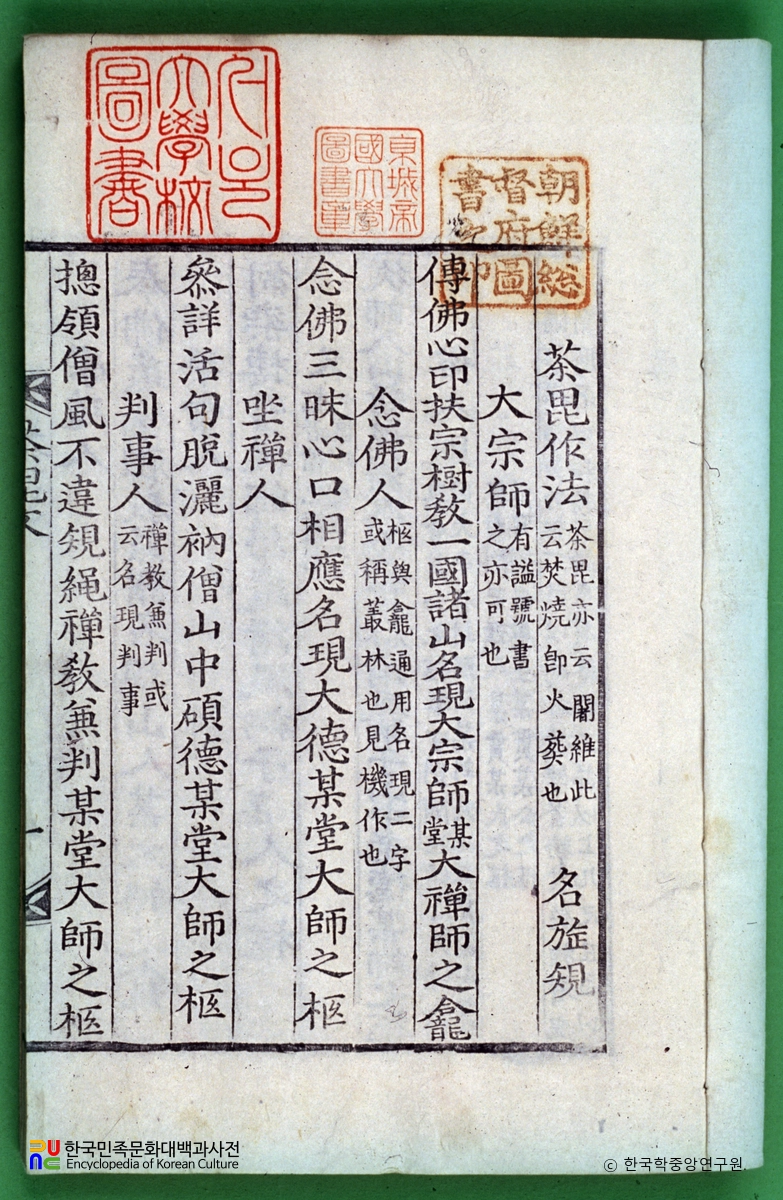 朝鮮総督府圖書之印
京城帝國大學圖書章
서울大學校圖書
茶毘作法 茶毘亦云闍維此云焚燒卽火葬也 名旌䂓
大宗師 有謚號書之亦可也
傳佛心印扶宗樹敎一國諸山名現大宗師某堂大禪師之龕
念佛人 柩與龕通用名現二字或稱叢林也見機作也
念佛三昧心口相應名現大德某堂大師之柩
坐禪人
叅詳活句脫灑衲僧山中碩德某堂大師之柩
判事人 禪敎兼判或云名現判事
摠領僧風不違䂓繩禪敎兼判某堂大師之柩
茶毘文 一
한국민족문화대백과사전
Encyclopedia of Korean Culture
ⓒ 한국학중앙연구원